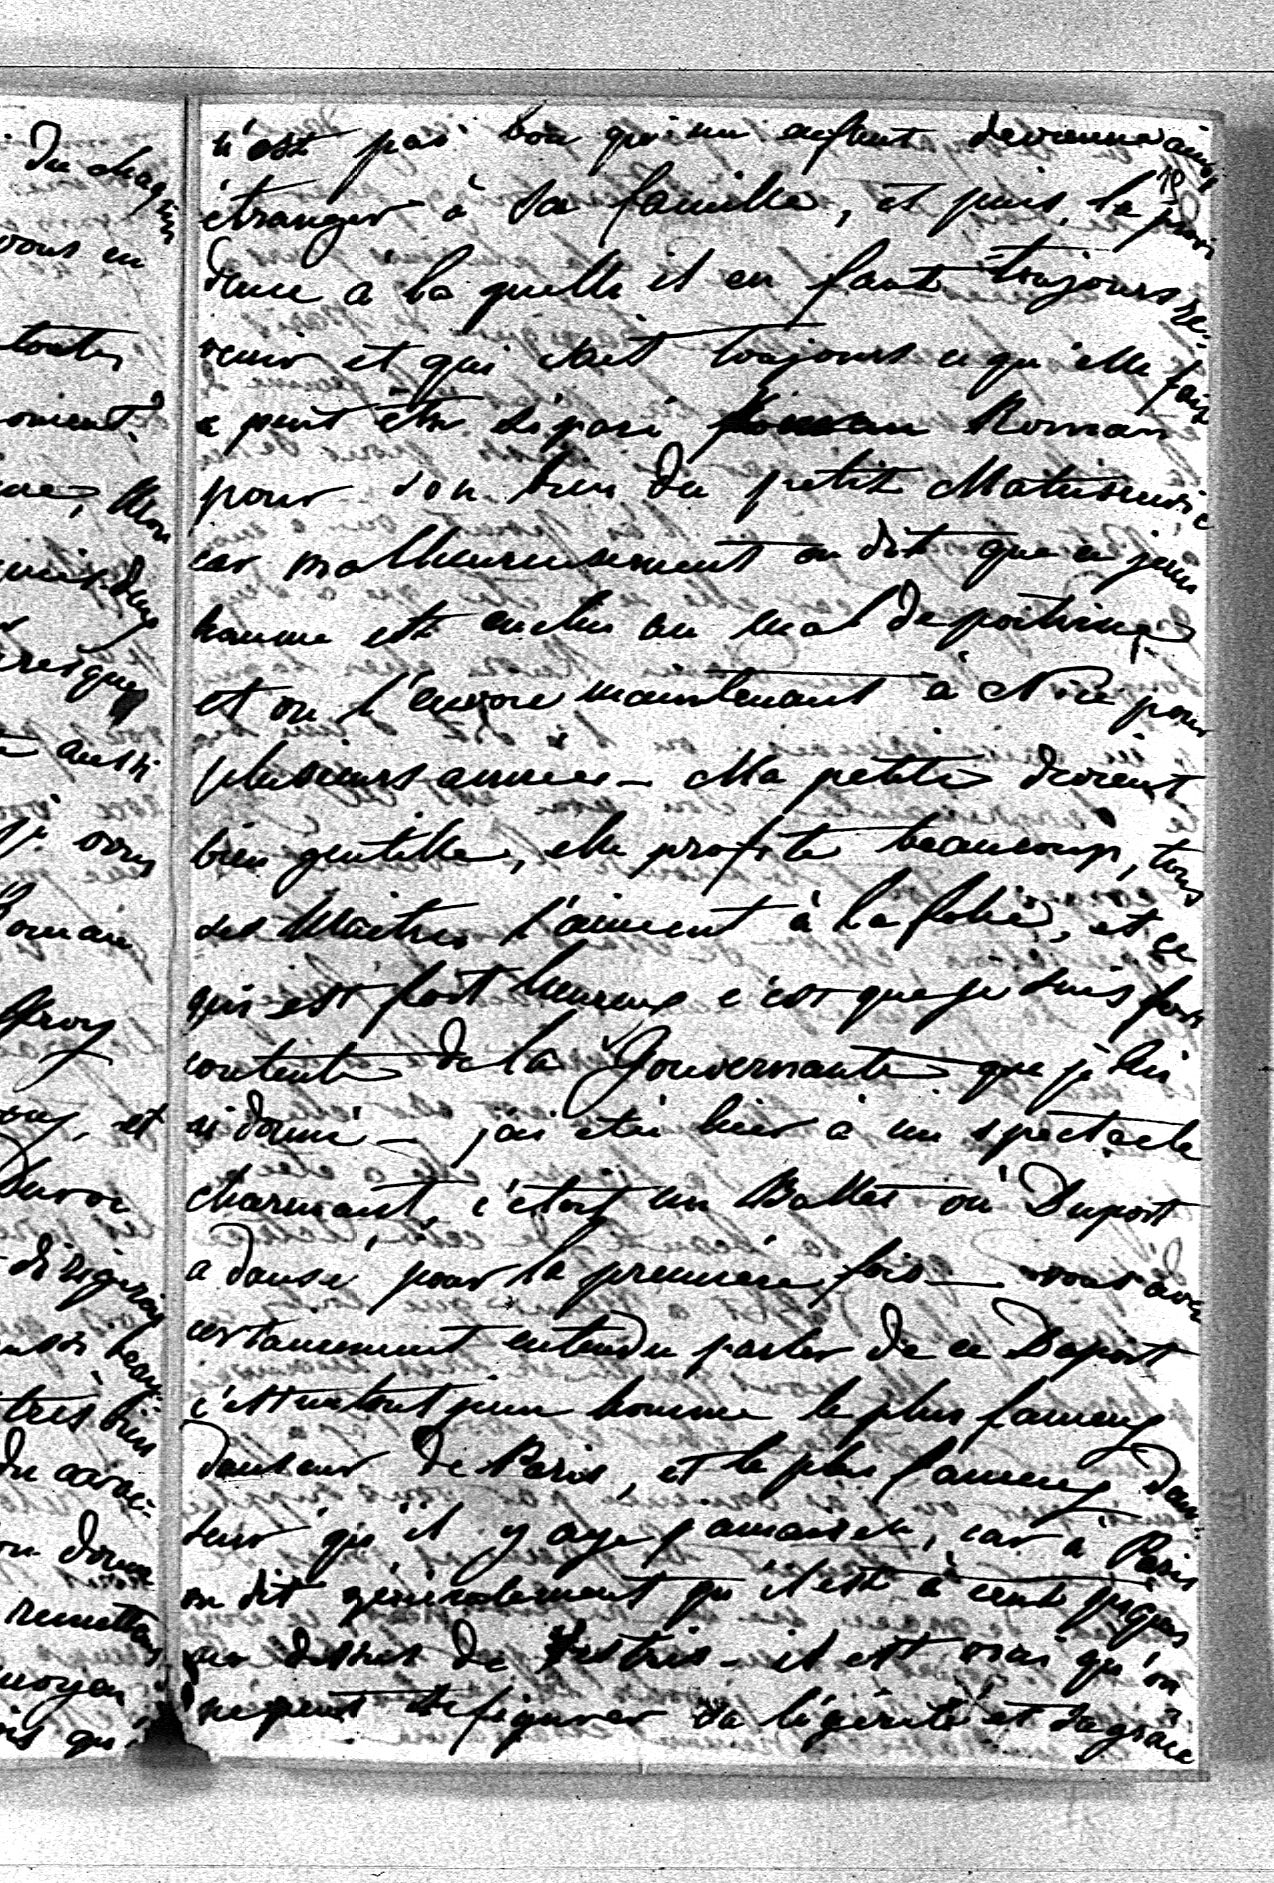 du chagrin
vous en
toutes
aussi
vous
Romain
et
Duroc
dirigerai
très bien
du carac-
donne
remettons
moyen
qui
n'est pas bon qu'un enfant devienne ainsi
19
étranger à sa famille, et puis, la provi
dence a la quelle il en faut toujours re-
venir et qui sait toujours ce qu'elle fait
a peut être séparé Roman
pour son bien du petit Matusievic
car malheureusement on dit que ce jeune
homme est enclin au mal de poitrine
et on l'envoye maintenant à Nice pour
plusieurs années — Ma petite devient
bien gentille, elle profite beaucoup, tous
ses Maitres l'aiment à la folie, et ce
qui est fort heureux c'est que je suis fort
contente de la Gouvernante que je lui
ai donné — j'ai eté hier à un spectacle
charmant, c'étoit un Ballet où Duport
a dansé pour la première fois — vous avez
certainement entendu parler de ce Duport
c'est un tout jeune homme le plus fameux
danseur de Paris, et le plus fameux dan-
seur qu'il y aye jamais eu, car à Paris
on dit généralement qu'il est à cent piques
au dessus de Vestris — il est vrai qu'on
ne peut se figurer sa légéreté et sa grace